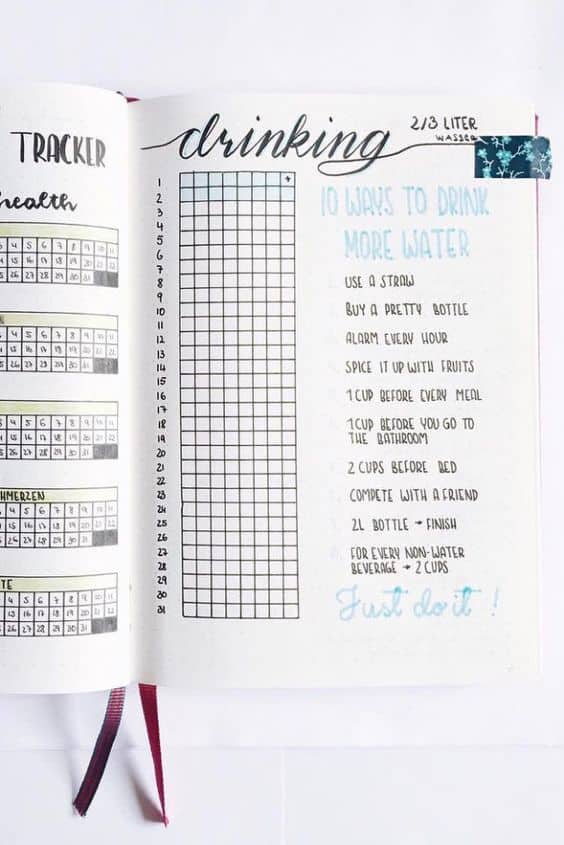 TRACKER
health
4 5 6 7 8 9 10 11
15 16 17 18 19 20 21 22
26 27 28 29 30 31
4 5 6 7 8 9 10 11
15 16 17 18 19 20 21 22
26 27 28 29 30 31
4 5 6 7 8 9 10 11
15 16 17 18 19 20 21 22
26 27 28 29 30 31
HMERZEN
4 5 6 7 8 9 10 11
15 16 17 18 19 20 21 22
26 27 28 29 30 31
TE
4 5 6 7 8 9 10 11
15 16 17 18 19 20 21 22
26 27 28 29 30 31
drinking
2/3 LITER
WASSER
1
2
3
4
5
6
7
8
9
10
11
12
13
14
15
16
17
18
19
20
21
22
23
24
25
26
27
28
29
30
31
+
10 WAYS TO DRINK
MORE WATER
USE A STRAW
BUY A PRETTY BOTTLE
ALARM EVERY HOUR
SPICE IT UP WITH FRUITS
1 CUP BEFORE EVERY MEAL
1 CUP BEFORE YOU GO TO
THE BATHROOM
2 CUPS BEFORE BED
COMPETE WITH A FRIEND
2L BOTTLE → FINISH
FOR EVERY NON-WATER
BEVERAGE → 2 CUPS
Just do it !